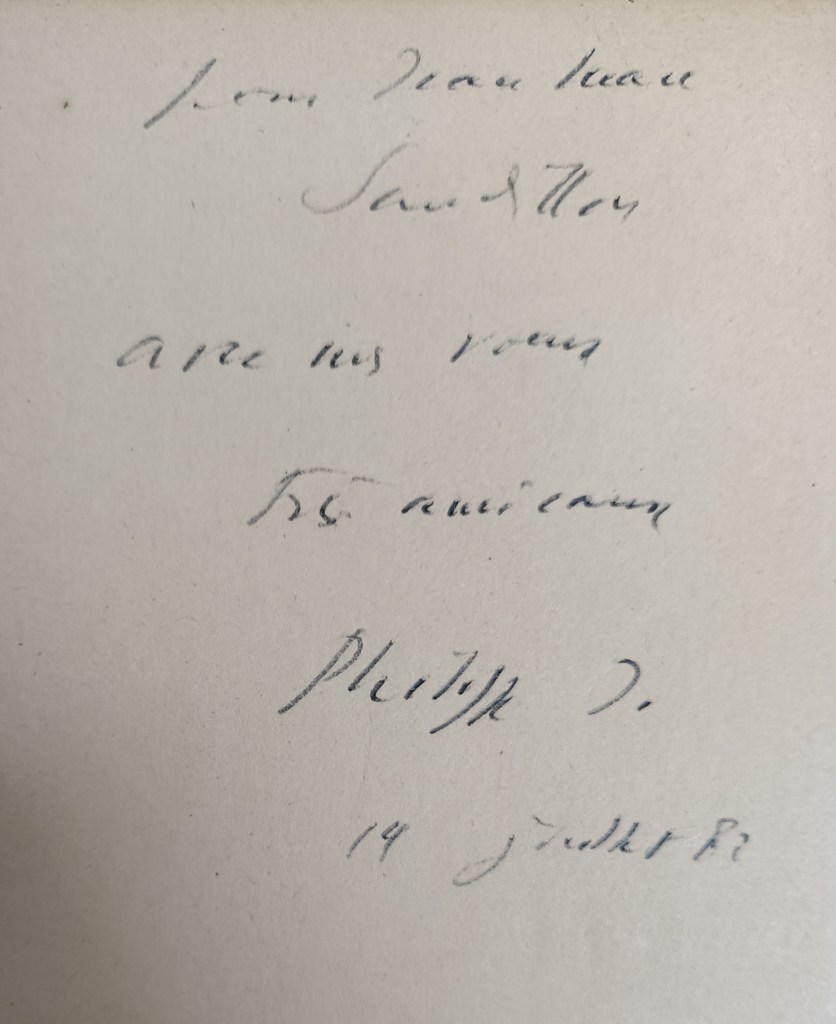 pour Jean Marc
avec mes vœux
Très amicaux
Philippe J.
14 juillet 82